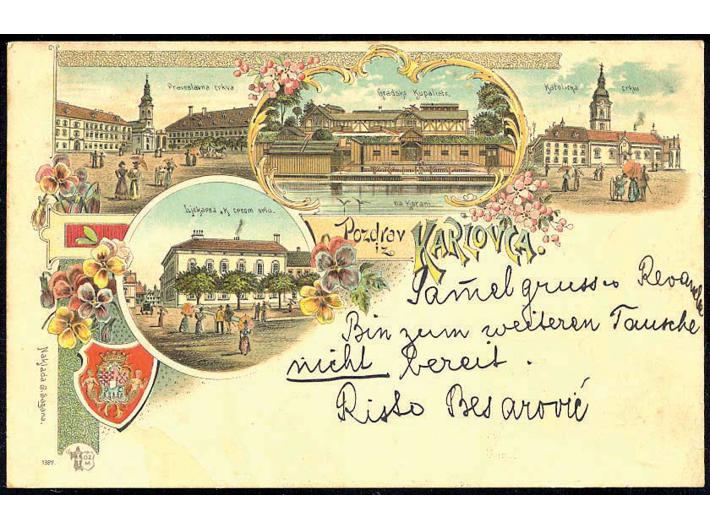 Pravoslavna crkva
Gradsko Kupalište
na Korani.
Katolička crkva
Ljekarna „K crnom orlu.
Pozdrav
iz
KARLOVCA.
Samelgruss
Bin zum weiteren Tausche
nicht bereit.
Risto Besarović
Naklada